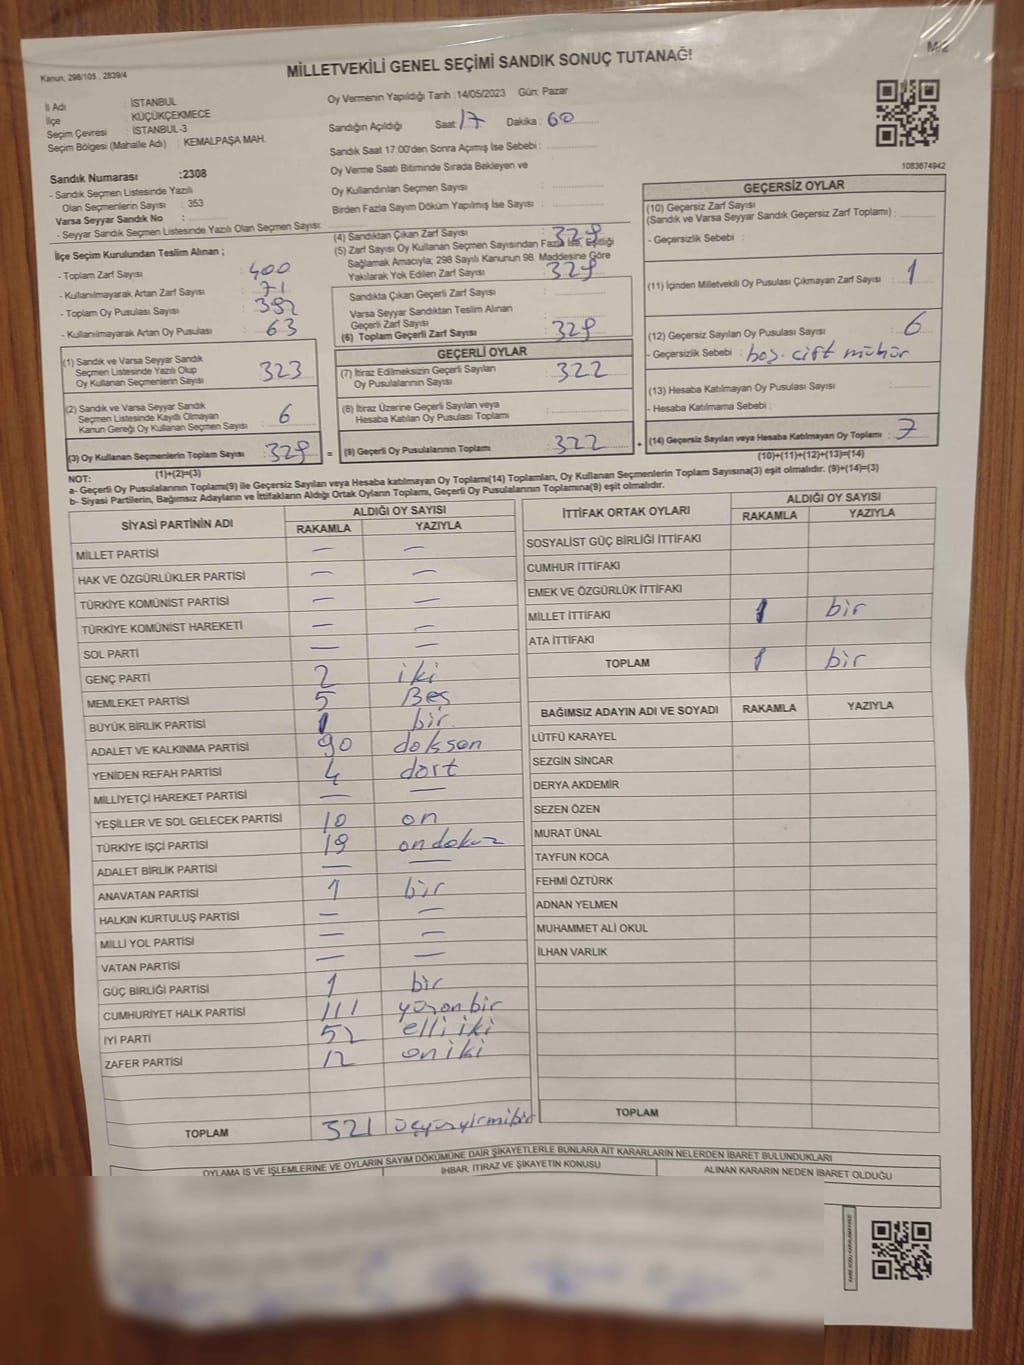 Kanun, 298/105 , 2839/4
MİLLETVEKİLİ GENEL SEÇİMİ SANDIK SONUÇ TUTANAĞI
İl Adı : İSTANBUL
İlçe : KÜÇÜKÇEKMECE
Seçim Çevresi : İSTANBUL-3
Seçim Bölgesi (Mahalle Adı) : KEMALPAŞA MAH.
Sandık Numarası :2308
- Sandık Seçmen Listesinde Yazılı
Olan Seçmenlerin Sayısı : 353
Varsa Seyyar Sandık No :
- Seyyar Sandık Seçmen Listesinde Yazılı Olan Seçmen Sayısı:
Oy Vermenin Yapıldığı Tarih :14/05/2023 Gün: Pazar
Sandığın Açıldığı Saat 17 Dakika : 60
Sandık Saat 17:00'den Sonra Açımış İse Sebebi :
Oy Verme Saati Bitiminde Sırada Bekleyen ve
Oy Kullandırılan Seçmen Sayısı :
Birden Fazla Sayım Döküm Yapılmış İse Sayısı :
1083674942
İlçe Seçim Kurulundan Teslim Alınan ;
- Toplam Zarf Sayısı : 400
- Kullanılmayarak Artan Zarf Sayısı : 71
- Toplam Oy Pusulası Sayısı : 392
- Kullanılmayarak Artan Oy Pusulası : 63
(1) Sandık ve Varsa Seyyar Sandık
Seçmen Listesinde Yazılı Olup
Oy Kullanan Seçmenlerin Sayısı : 323
(2) Sandık ve Varsa Seyyar Sandık
Seçmen Listesinde Kayıtlı Olmayan
Kanun Gereği Oy Kullanan Seçmen Sayısı : 6
(3) Oy Kullanan Seçmenlerin Toplam Sayısı : 329
(1)+(2)=(3)
(4) Sandıktan Çıkan Zarf Sayısı : 329
(5) Zarf Sayısı Oy Kullanan Seçmen Sayısından Fazla İse, Eşitliği
Sağlamak Amacıyla; 298 Sayılı Kanunun 98. Maddesine Göre
Yakılarak Yok Edilen Zarf Sayısı : 329
Sandıkta Çıkan Geçerli Zarf Sayısı :
Varsa Seyyar Sandıktan Teslim Alınan
Geçerli Zarf Sayısı :
(6) Toplam Geçerli Zarf Sayısı : 329
GEÇERLİ OYLAR
(7) İtiraz Edilmeksizin Geçerli Sayılan
Oy Pusulalarının Sayısı : 322
(8) İtiraz Üzerine Geçerli Sayılan veya
Hesaba Katılan Oy Pusulası Toplamı :
= (9) Geçerli Oy Pusulalarının Toplamı : 322 +
GEÇERSİZ OYLAR
(10) Geçersiz Zarf Sayısı
(Sandık ve Varsa Seyyar Sandık Geçersiz Zarf Toplamı) :
- Geçersizlik Sebebi :
(11) İçinden Milletvekili Oy Pusulası Çıkmayan Zarf Sayısı : 1
(12) Geçersiz Sayılan Oy Pusulası Sayısı : 6
- Geçersizlik Sebebi : boş. çift mühür
(13) Hesaba Katılmayan Oy Pusulası Sayısı :
- Hesaba Katılmama Sebebi :
(14) Geçersiz Sayılan veya Hesaba Katılmayan Oy Toplamı : 7
(10)+(11)+(12)+(13)=(14)
NOT:
a- Geçerli Oy Pusulalarının Toplamı(9) ile Geçersiz Sayılan veya Hesaba katılmayan Oy Toplamı(14) Toplamları, Oy Kullanan Seçmenlerin Toplam Sayısına(3) eşit olmalıdır. (9)+(14)=(3)
b- Siyasi Partilerin, Bağımsız Adayların ve İttifakların Aldığı Ortak Oyların Toplamı, Geçerli Oy Pusulalarının Toplamına(9) eşit olmalıdır.
SİYASİ PARTİNİN ADI ALDIĞI OY SAYISI
RAKAMLA YAZIYLA
MİLLET PARTİSİ — —
HAK VE ÖZGÜRLÜKLER PARTİSİ — —
TÜRKİYE KOMÜNİST PARTİSİ — —
TÜRKİYE KOMÜNİST HAREKETİ — —
SOL PARTİ — —
GENÇ PARTİ 2 iki
MEMLEKET PARTİSİ 5 Beş
BÜYÜK BİRLİK PARTİSİ 1 bir
ADALET VE KALKINMA PARTİSİ 90 doksan
YENİDEN REFAH PARTİSİ 4 dört
MİLLİYETÇİ HAREKET PARTİSİ — —
YEŞİLLER VE SOL GELECEK PARTİSİ 10 on
TÜRKİYE İŞÇİ PARTİSİ 19 ondokuz
ADALET BİRLİK PARTİSİ — —
ANAVATAN PARTİSİ 1 bir
HALKIN KURTULUŞ PARTİSİ — —
MİLLİ YOL PARTİSİ — —
VATAN PARTİSİ — —
GÜÇ BİRLİĞİ PARTİSİ 1 bir
CUMHURİYET HALK PARTİSİ 111 yüzonbir
İYİ PARTİ 52 elli iki
ZAFER PARTİSİ 12 on iki
TOPLAM 321 üçyüzyirmibir
İTTİFAK ORTAK OYLARI ALDIĞI OY SAYISI
RAKAMLA YAZIYLA
SOSYALİST GÜÇ BİRLİĞİ İTTİFAKI
CUMHUR İTTİFAKI
EMEK VE ÖZGÜRLÜK İTTİFAKI
MİLLET İTTİFAKI 1 bir
ATA İTTİFAKI
TOPLAM 1 bir
BAĞIMSIZ ADAYIN ADI VE SOYADI RAKAMLA YAZIYLA
LÜTFÜ KARAYEL
SEZGİN SİNCAR
DERYA AKDEMİR
SEZEN ÖZEN
MURAT ÜNAL
TAYFUN KOCA
FEHMİ ÖZTÜRK
ADNAN YELMEN
MUHAMMET ALİ OKUL
İLHAN VARLIK
TOPLAM
OYLAMA İŞ VE İŞLEMLERİNE VE OYLARIN SAYIM DÖKÜMÜNE DAİR ŞİKAYETLERLE BUNLARA AİT KARARLARIN NELERDEN İBARET BULUNDUKLARI
İHBAR, İTİRAZ VE ŞİKAYETİN KONUSU
ALINAN KARARIN NEDEN İBARET OLDUĞU